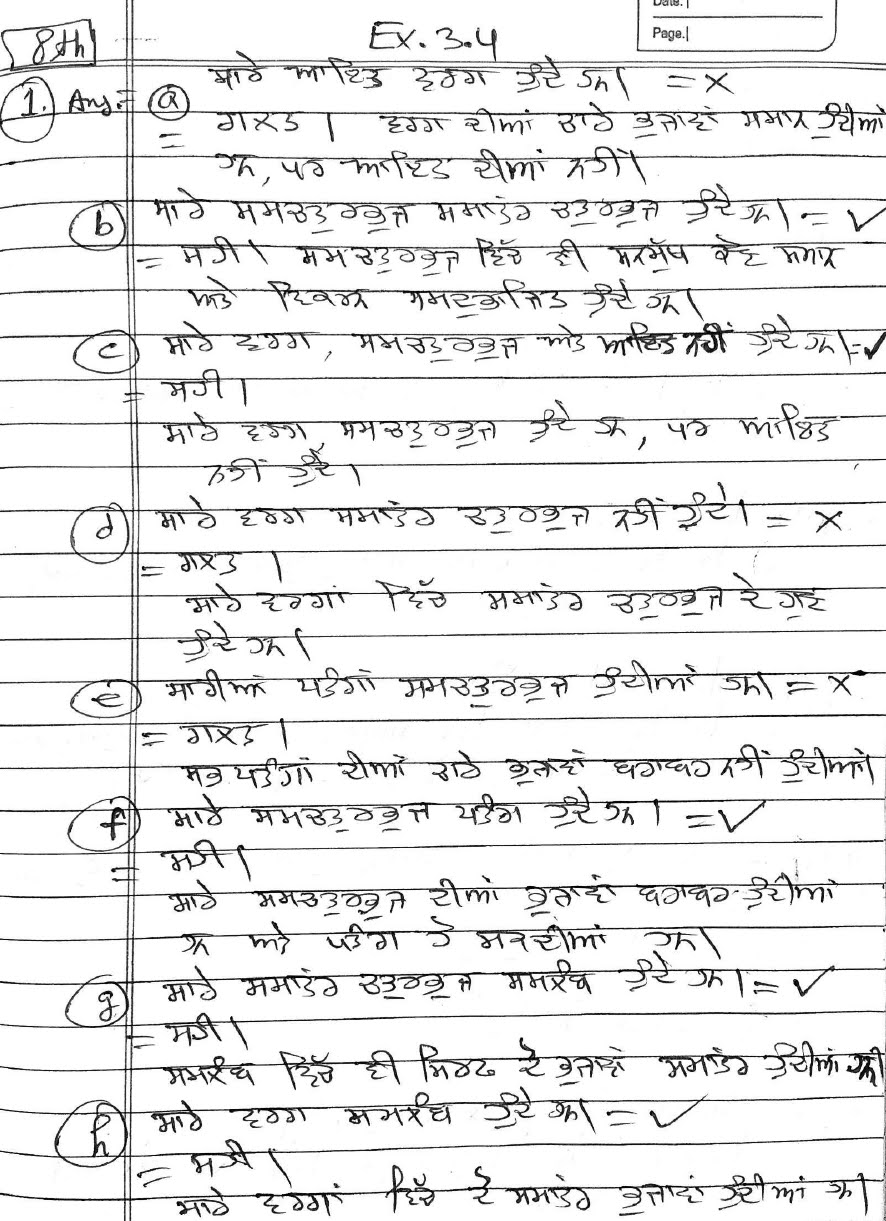 Date.
Page.
8th
Ex. 3.4
ਸਾਰੇ ਆਇਤ ਵਰਗ ਹੁੰਦੇ ਹਨ। = ×
1. Ans.= (a)
= ਗਲਤ । ਵਰਗ ਦੀਆਂ ਚਾਰੇ ਭੁਜਾਵਾਂ ਸਮਾਨ ਹੁੰਦੀਆਂ
ਹਨ, ਪਰ ਆਇਤ ਦੀਆਂ ਨਹੀਂ।
(b) ਸਾਰੇ ਸਮਚਤੁਰਭੁਜ ਸਮਾਂਤਰ ਚਤੁਰਭੁਜ ਹੁੰਦੇ ਹਨ। = ✓
= ਸਹੀ। ਸਮਚਤੁਰਭੁਜ ਵਿੱਚ ਵੀ ਸਨਮੁੱਖ ਕੋਣ ਸਮਾਨ
ਅਤੇ ਵਿਕਰਨ ਸਮਦੁਭਾਜਿਤ ਹੁੰਦੇ ਹਨ।
(c) ਸਾਰੇ ਵਰਗ, ਸਮਚਤੁਰਭੁਜ ਅਤੇ ਆਇਤ ਨਹੀਂ ਹੁੰਦੇ ਹਨ।=✓
= ਸਹੀ।
ਸਾਰੇ ਵਰਗ, ਸਮਚਤੁਰਭੁਜ ਹੁੰਦੇ ਹਨ, ਪਰ ਆਇਤ
ਨਹੀਂ ਹੁੰਦੇ।
(d) ਸਾਰੇ ਵਰਗ ਸਮਾਂਤਰ ਚਤੁਰਭੁਜ ਨਹੀਂ ਹੁੰਦੇ। = ×
= ਗਲਤ ।
ਸਾਰੇ ਵਰਗਾਂ ਵਿੱਚ ਸਮਾਂਤਰ ਚਤੁਰਭੁਜ ਦੇ ਗੁਣ
ਹੁੰਦੇ ਹਨ।
(e) ਸਾਰੀਆਂ ਪਤੰਗਾਂ ਸਮਚਤੁਰਭੁਜ ਹੁੰਦੀਆਂ ਹਨ। = ×
= ਗਲਤ।
ਸਭ ਪਤੰਗਾਂ ਦੀਆਂ ਚਾਰੇ ਭੁਜਾਵਾਂ ਬਰਾਬਰ ਨਹੀਂ ਹੁੰਦੀਆਂ।
(f) ਸਾਰੇ ਸਮਚਤੁਰਭੁਜ ਪਤੰਗ ਹੁੰਦੇ ਹਨ। = ✓
= ਸਹੀ।
ਸਾਰੇ ਸਮਚਤੁਰਭੁਜ ਦੀਆਂ ਭੁਜਾਵਾਂ ਬਰਾਬਰ ਹੁੰਦੀਆਂ
ਹਨ ਅਤੇ ਪਤੰਗ ਹੋ ਸਕਦੀਆਂ ਹਨ।
(g) ਸਾਰੇ ਸਮਾਂਤਰ ਚਤੁਰਭੁਜ ਸਮਲੰਬ ਹੁੰਦੇ ਹਨ। = ✓
= ਸਹੀ।
ਸਮਲੰਬ ਵਿੱਚ ਵੀ ਸਿਰਫ ਦੋ ਭੁਜਾਵਾਂ ਸਮਾਂਤਰ ਹੁੰਦੀਆਂ ਹਨ।
(h) ਸਾਰੇ ਵਰਗ ਸਮਲੰਬ ਹੁੰਦੇ ਹਨ। = ✓
= ਸਹੀ ।
ਸਾਰੇ ਵਰਗਾਂ ਵਿੱਚ ਦੋ ਸਮਾਂਤਰ ਭੁਜਾਵਾਂ ਹੁੰਦੀਆਂ ਹਨ।